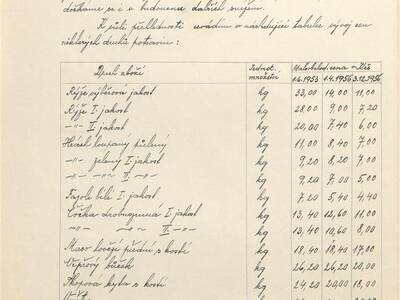 dočkáme se i v budoucnu dalších snížení.
K větší přehlednosti uvádím v následující tabulce vývoj cen
některých druhů potravin:
Druh zboží Jednot. množství Maloobchod. cena v Kčs
1.6.1953 1.4.1956 3.12.1956
Rýže výběrová jakost kg 33,00 14,00 11,00
Rýže I. jakost kg 28,00 9,00 7,20
-"- II. jakost kg 20,00 7,40 6,00
Hrách loupaný půlený kg 11,00 8,40 7,00
-"- zelený I. jakost kg 9,20 8,20 7,00
-"- -"- II. -"- kg 9,20 7,00 5,00
Fazole bílé I. jakost kg 7,20 5,40 4,40
Čočka drobnozrnná I. jakost kg 13,40 12,60 11,00
-"- -"- II. -"- kg 13,40 10,60 8,00
Maso hovězí přední s kostí kg 18,40 18,40 17,00
Vepřový bůček kg 26,20 26,20 20,00
Skopová kýta s kostí kg 24,20 20,00 18,00